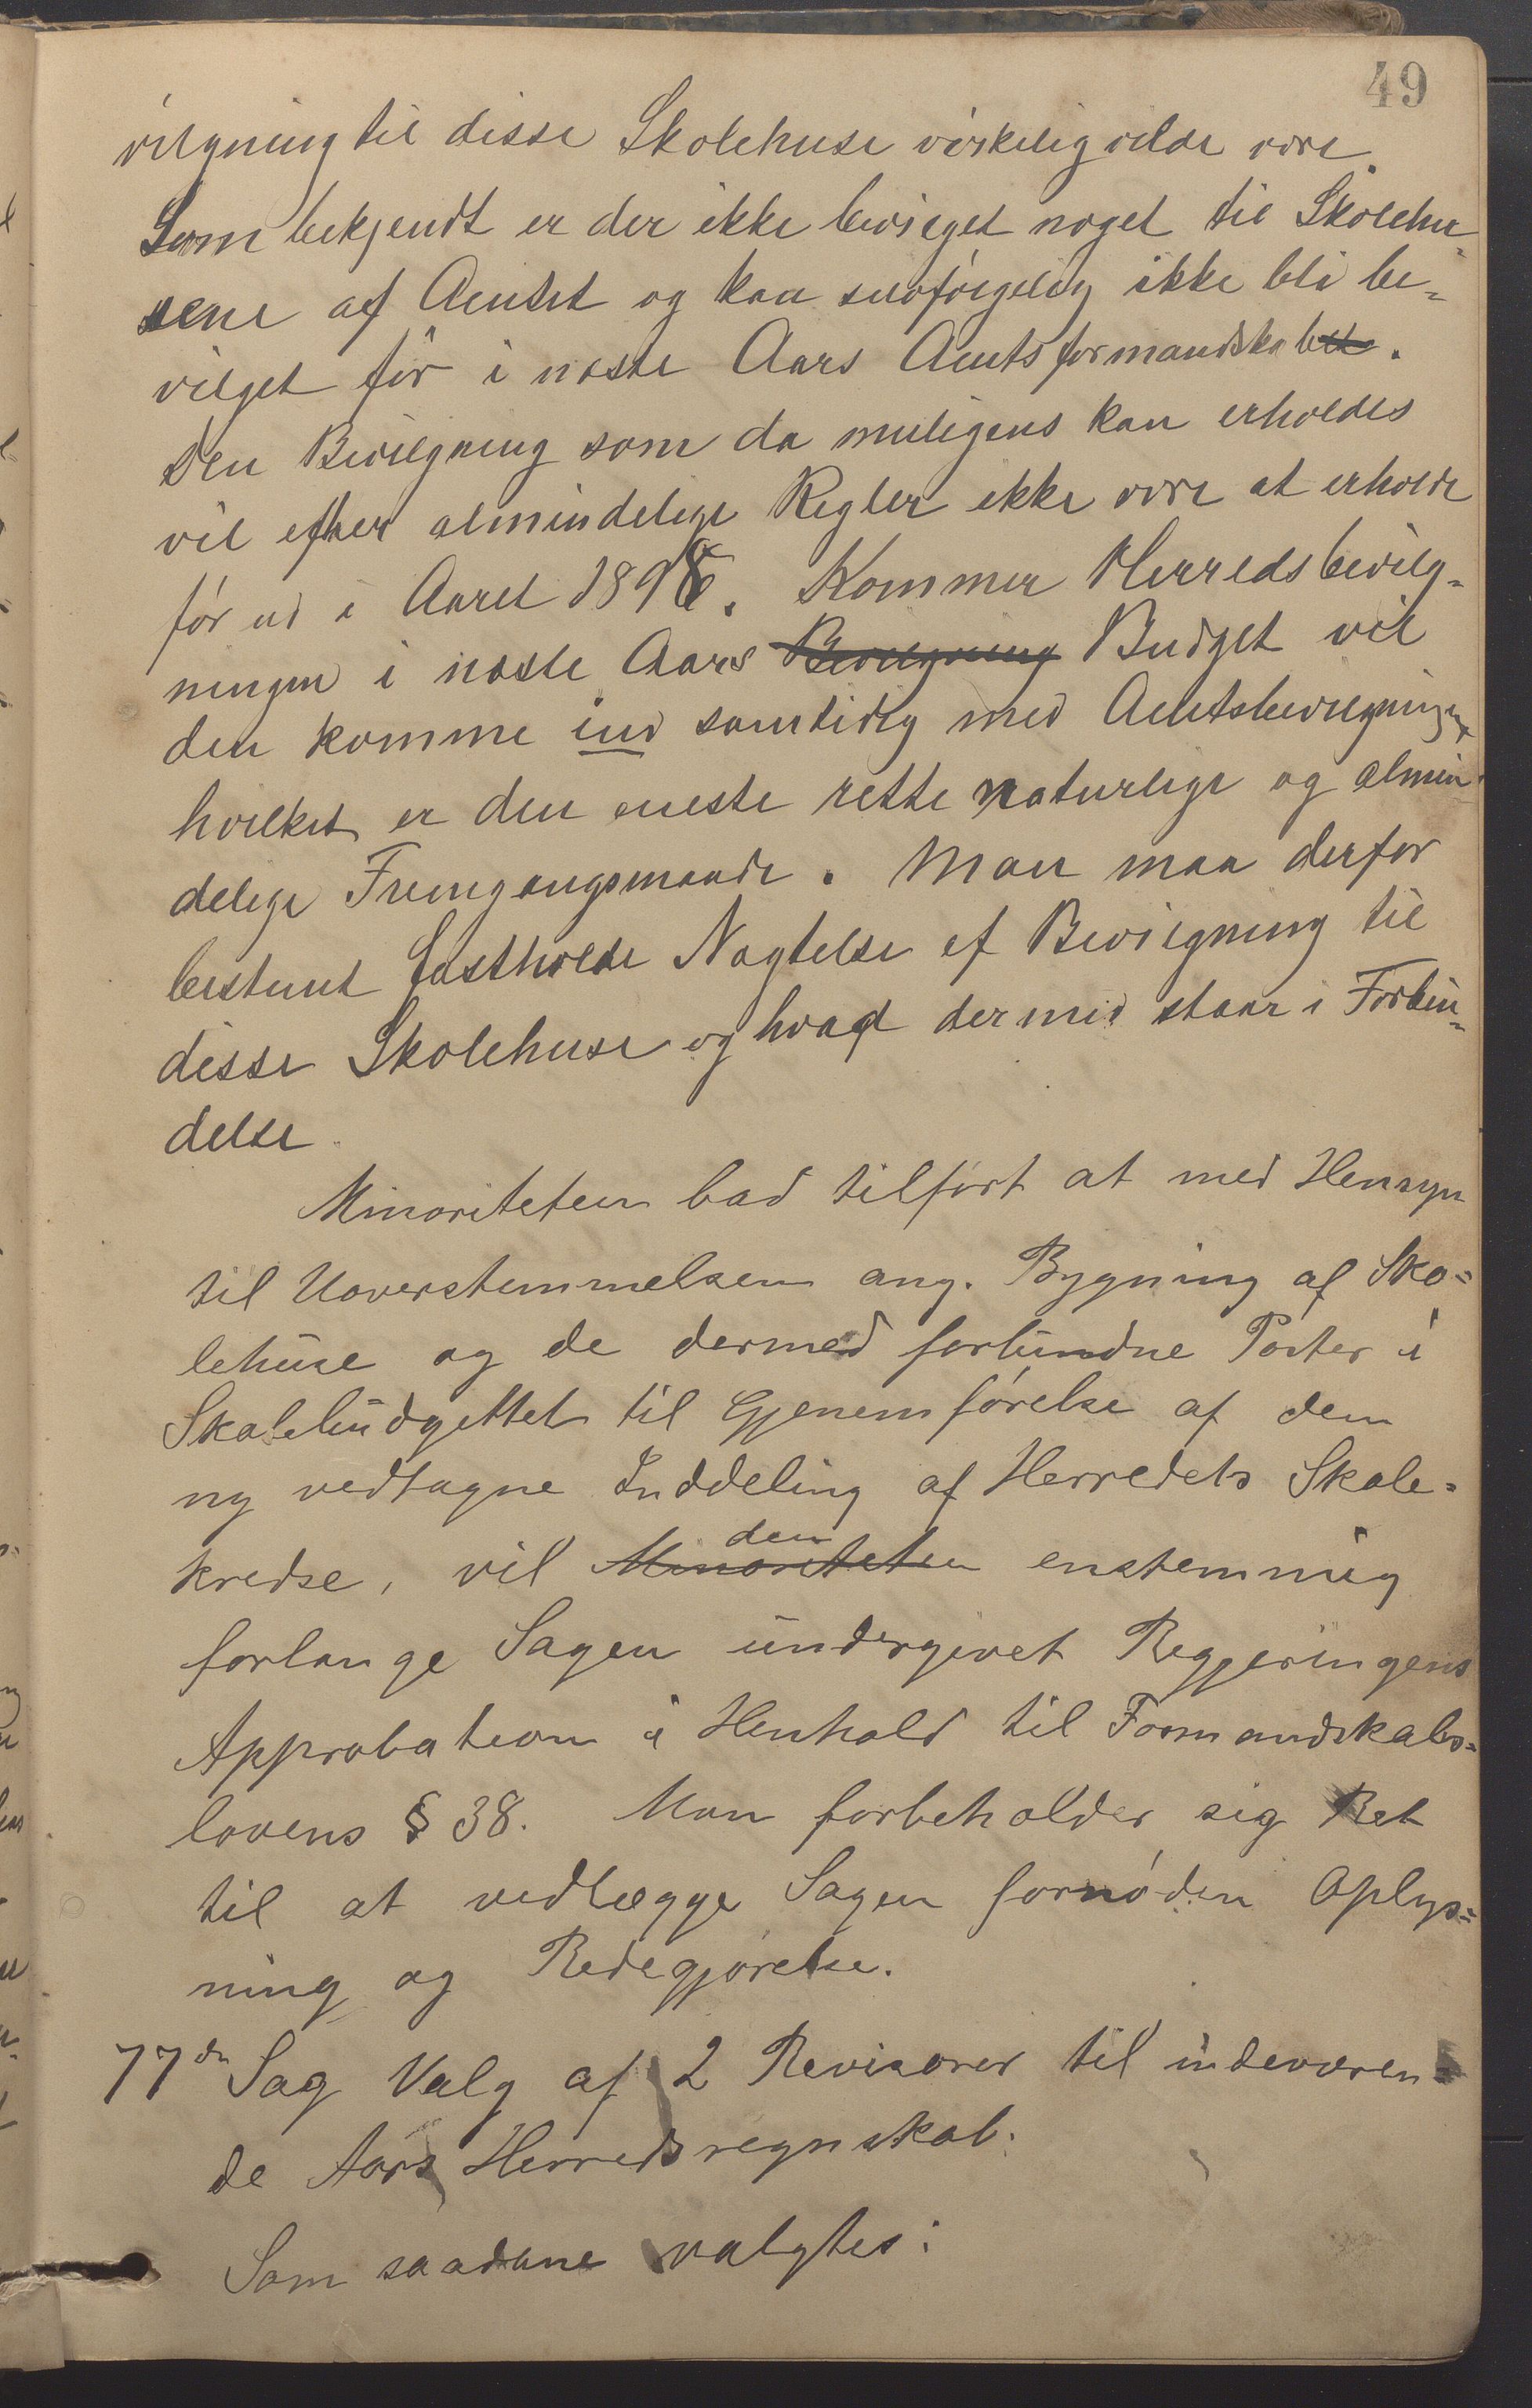 49
vilgning til disse Skolehuse virkelig vilde være.
Som bekjendt er der ikke bevilget noget til Skolehu-
sene af Amtet og kan selvfølgelig ikke bli be-
vilget før i næste Aars Amtsformandskabet.
Den Bevilgning som da muligens kan erholdes
vil efter almindelige Regler ikke være at erholde
før ud i Aaret 1898. Kommer Herredsbevilg-
ningen i næste Aars Bevilgning Budget vil
den komme ind samtidig med Amtsbevilgningen
hvilket er den eneste rette naturlige og almin-
delige Fremgangsmaade. Man maa derfor
bestemt fastholde Nægtelse af Bevilgning til
disse Skolehuse og hvad dermed staar i Forbin-
delse.
Minoriteten bad tilført at med Hensyn
til Uoverstemmelsen ang. Bygning af Sko=
lehuse og de dermed forbundne Poster i
Skolebudgettet til Gjenemførelse af den
ny vedtagne Inddeling af Herredets Skole=
kredse, vil Minoriteten den enstemmig
forlange Sagen undergivet Regjeringens
Approbation i Henhold til Formandskabs=
lovens § 38. Man forbeholder sig Ret
til at vedlægge Sagen fornøden Oplys=
ning og Redegjørelse.
77de Sag Valg af 2 Revisorer til indeværen=
de Aars Herredsregnskab.
Som saadane valgtes: